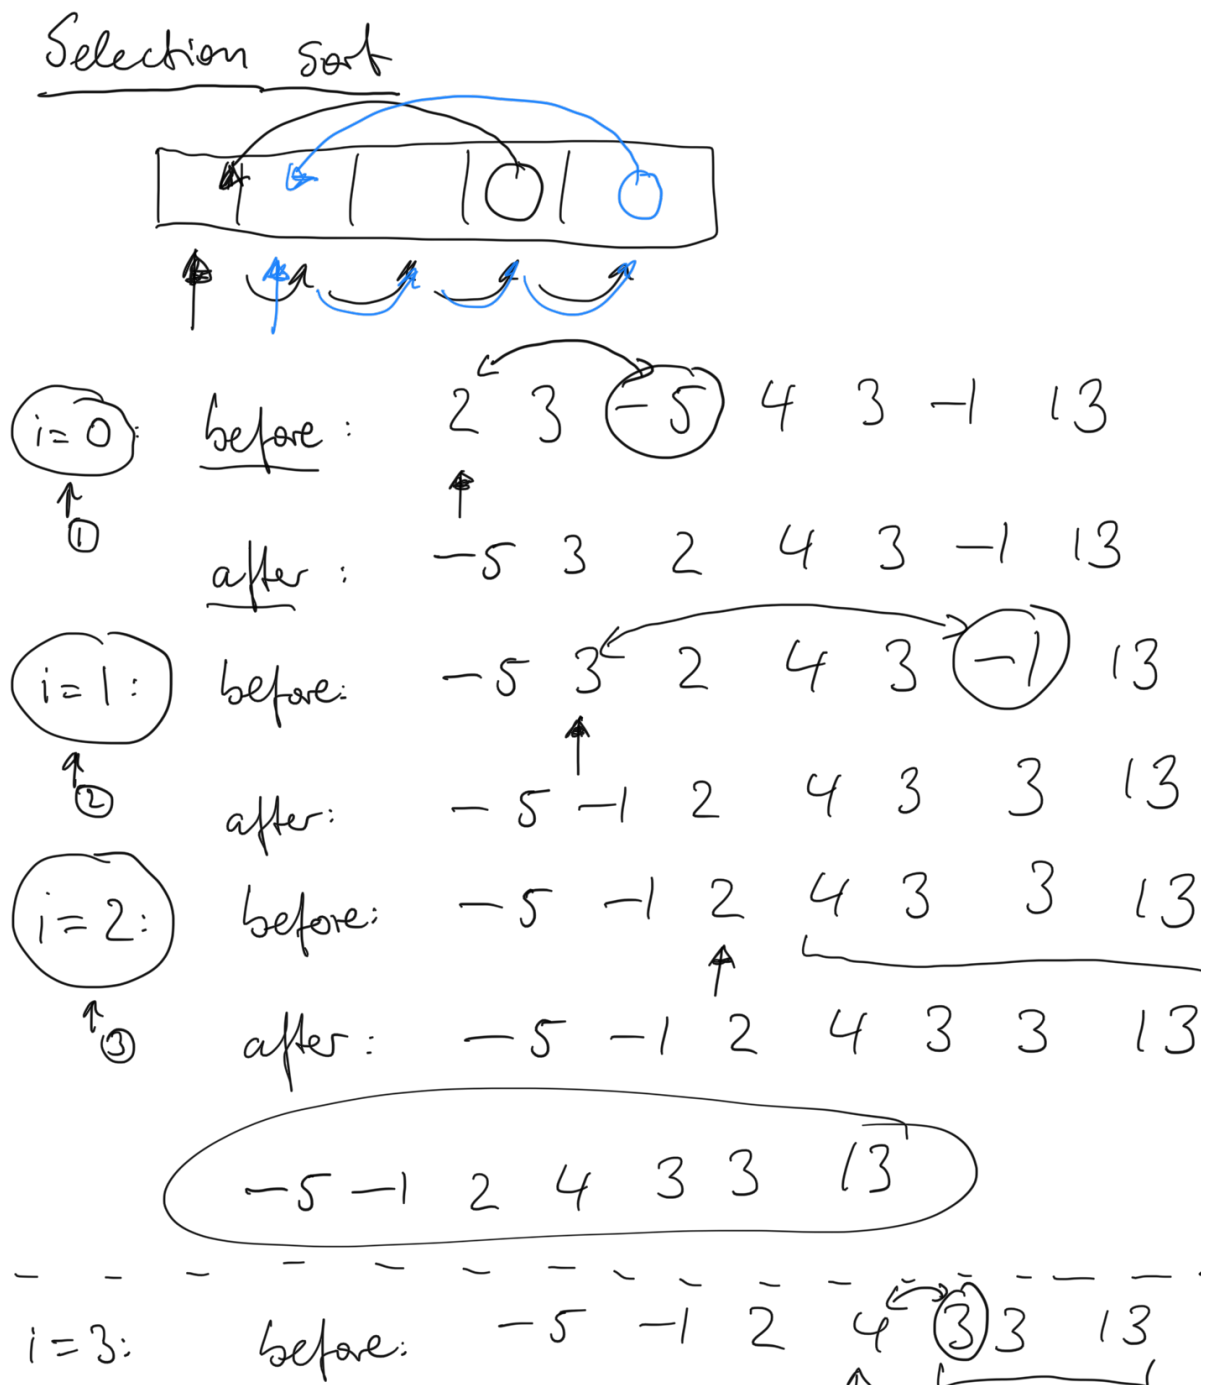 Selection sort
i=0: before: 2 3 -5 4 3 -1 13
①
after: -5 3 2 4 3 -1 13
i=1: before: -5 3 2 4 3 -1 13
②
after: -5 -1 2 4 3 3 13
i=2: before: -5 -1 2 4 3 3 13
③
after: -5 -1 2 4 3 3 13
-5 -1 2 4 3 3 13
i=3: before: -5 -1 2 4 3 3 13